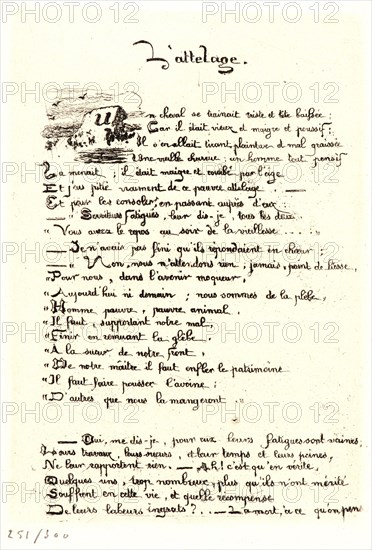 L'attelage.
Un cheval se trainait triste et tête baissée
Car il était vieux et maigre et poussif;
Il s'en allait tirant, plaintive et mal graissée
Une vieille charrue; un homme tout pensif
La menait; il était maigre et courbé par l'âge
Et j'eus pitié vraiment de ce pauvre attelage —
Et pour les consoler, en passant auprès d'eux:
— "Serviteurs fatigués, leur dis-je, tous les deux
"Vous aurez le repos au soir de la vieillesse ....;
— Je n'avais pas fini qu'ils répondaient en chœur:
— "Non, nous n'attendons rien; jamais, point de liesse,
"Pour nous, dans l'avenir moqueur,
"Aujourd'hui ni demain; nous sommes de la plèbe,
"Homme pauvre, pauvre animal,
"Il faut, supportant notre mal,
"Finir en remuant la glèbe.
"A la sueur de notre front,
"De notre maître il faut enfler le patrimoine
"Il faut faire pousser l'avoine;
"D'autres que nous la mangeront."
— Oui, me dis-je, pour eux leurs fatigues sont vaines,
Leurs travaux, leurs sueurs, et leur temps et leurs peines,
Ne leur rapportent rien. — Ah! c'est qu'en vérité,
Quelques uns, trop nombreux, plus qu'ils n'ont mérité
Souffrent en cette vie, et quelle récompense
De leurs labeurs ingrats?.. — La mort, à ce qu'on pense
251/300
PHOTO12